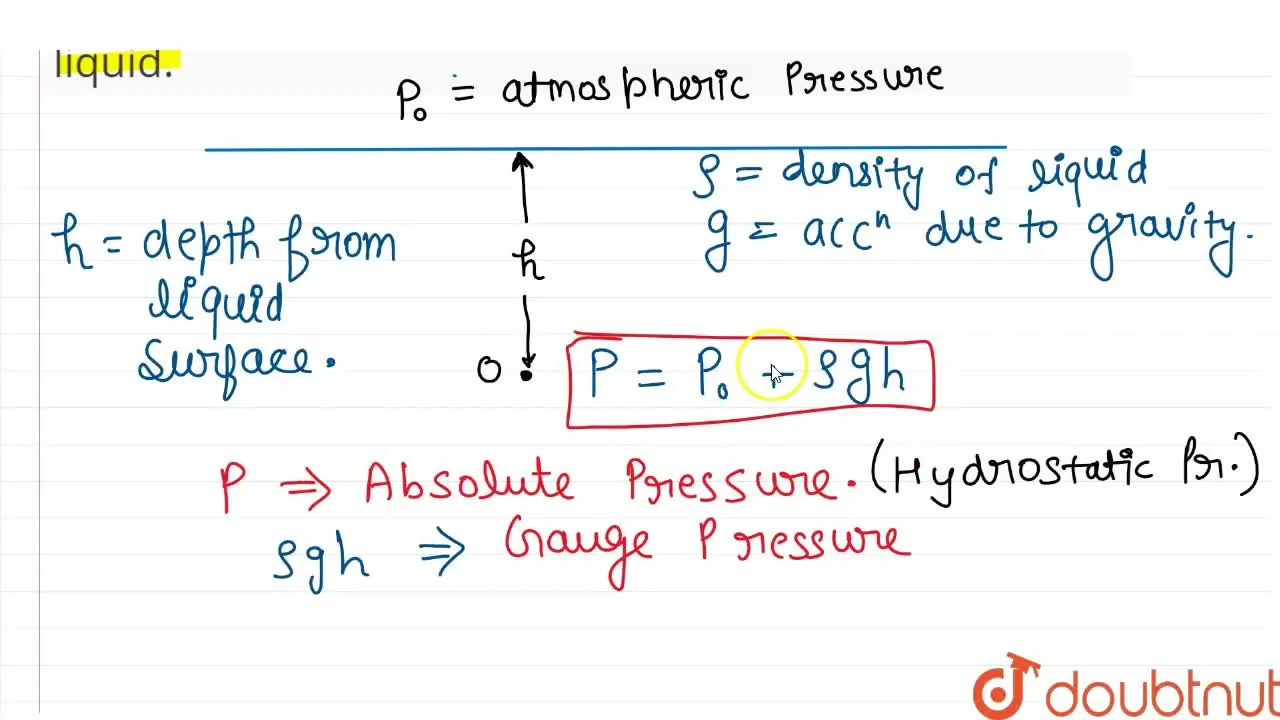 liquid.
P₀ = atmospheric Pressure
ρ = density of liquid
g = accⁿ due to gravity.
h = depth from
liquid
surface.
h
O
P = P₀ + ρgh
P ⇒ Absolute Pressure. (Hydrostatic Pr.)
ρgh ⇒ Gauge Pressure
doubtnut